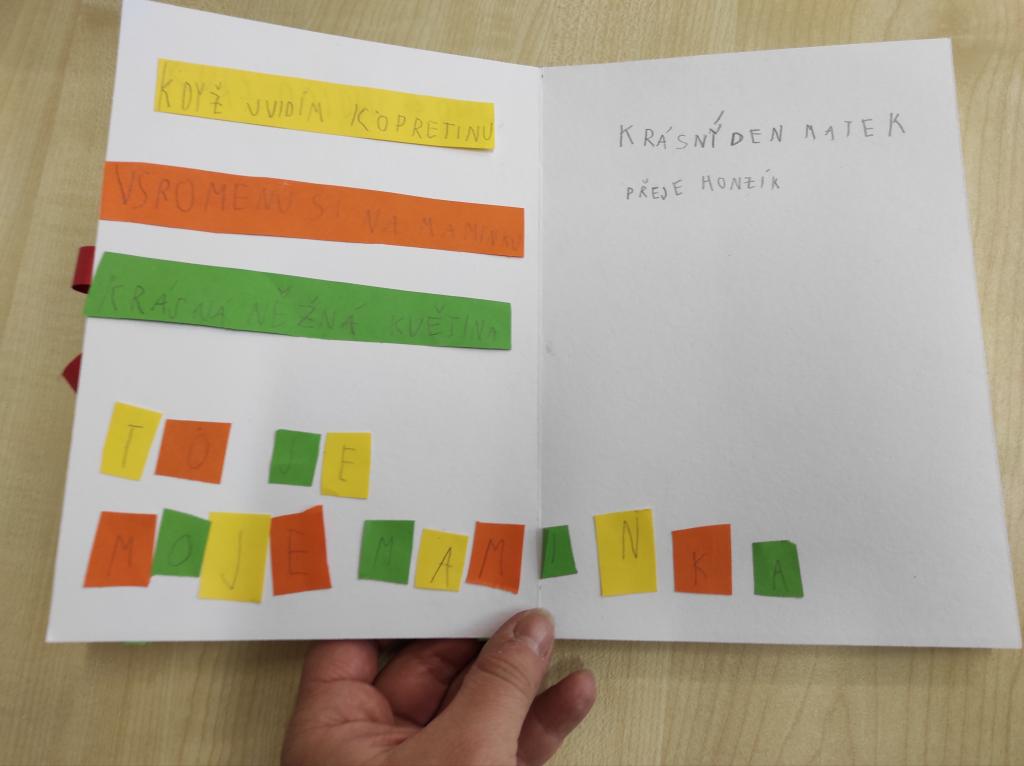 KDYŽ UVIDÍM KOPRETINU
VSROMENU SI NA MAMINKU
KRÁSNÁ NĚŽNÁ KVĚTINA
TO JE
MOJE MAMINKA
KRÁSNÝ DEN MATEK
PŘEJE HONZÍK